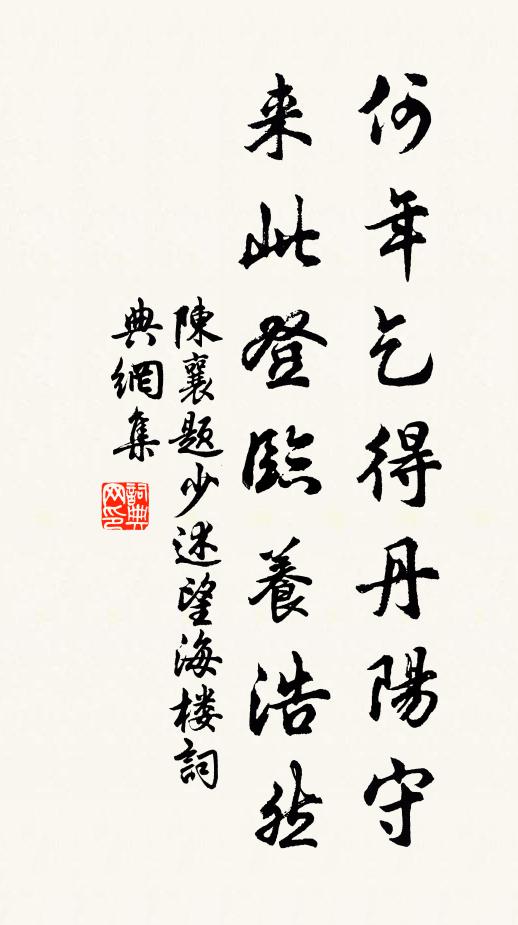 何年乞得丹陽守
来此登臨養浩然
陳襄題少述望海楼詞
典網集
詞典網印